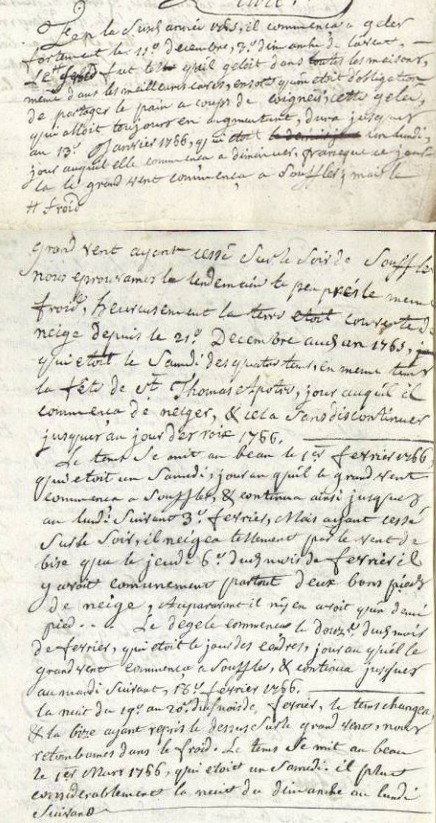 En la susd. année 1765, il commença a geler
fortement le 11e. Decembre, 3e. dimanche de l'avent,
Le froid fut tel qu'il geloit dans toutes les maisons,
meme dans les meilleures caves, ensorte qu'on étoit d'obligation
de partager le pain a coups de coignée; cette gelée,
qui alloit toujours en augmentant, dura jusques
au 13e. Janvier 1766, qui étoit un lundi,
jour auquel elle commença a diminuer, ce jour
la le grand vent commença à souffler; mais le
froid
grand vent ayant cessé sur le soir de souffler
nous eprouvames le lendemain a peu près le meme
froid, heureusement la terre etoit couverte de
neige depuis le 21e. Decembre aud. an 1765,
qui etoit le Samdi des quatre tems, en meme tems
la fête de St. Thomas apotre, jour auquel il
commença de neiger, & cela sans discontinuer
jusques au jour des rois 1766.
Le tems se mit au beau le 1er fevrier 1766,
qui étoit un Samedi; jour au quel le grand vent
commença a souffler, & continua ainsi jusques
au lundi suivant 3e. fevrier, Mais ayant cessé
sur le soir, il neigea tellement par le vent de
bise que le jeudi 6e. dud. mois de fevrier il
y avoit comunement partout deux bons pieds
de neige, Auparavant il n'y en avoit qu'un demi
pied. . . Le degele commença le douze. dud. mois
de fevrier, qui étoit le jour des cendres, jour au quel le
grand vent commença a souffler, & continua jusques
au mardi suivant, 18e. fevrier 1766.
la nuit du 19e. au 20e. dud. mois de fevrier, le tems changea,
& la bise ayant repris le dessus sur le grand vent, nous
retombames dans le froid. Le tems se mit au beau
le 1er Mars 1766, qui etoit un Samedi. il plut
considerablement la nuit du dimanche au lundi
suivant